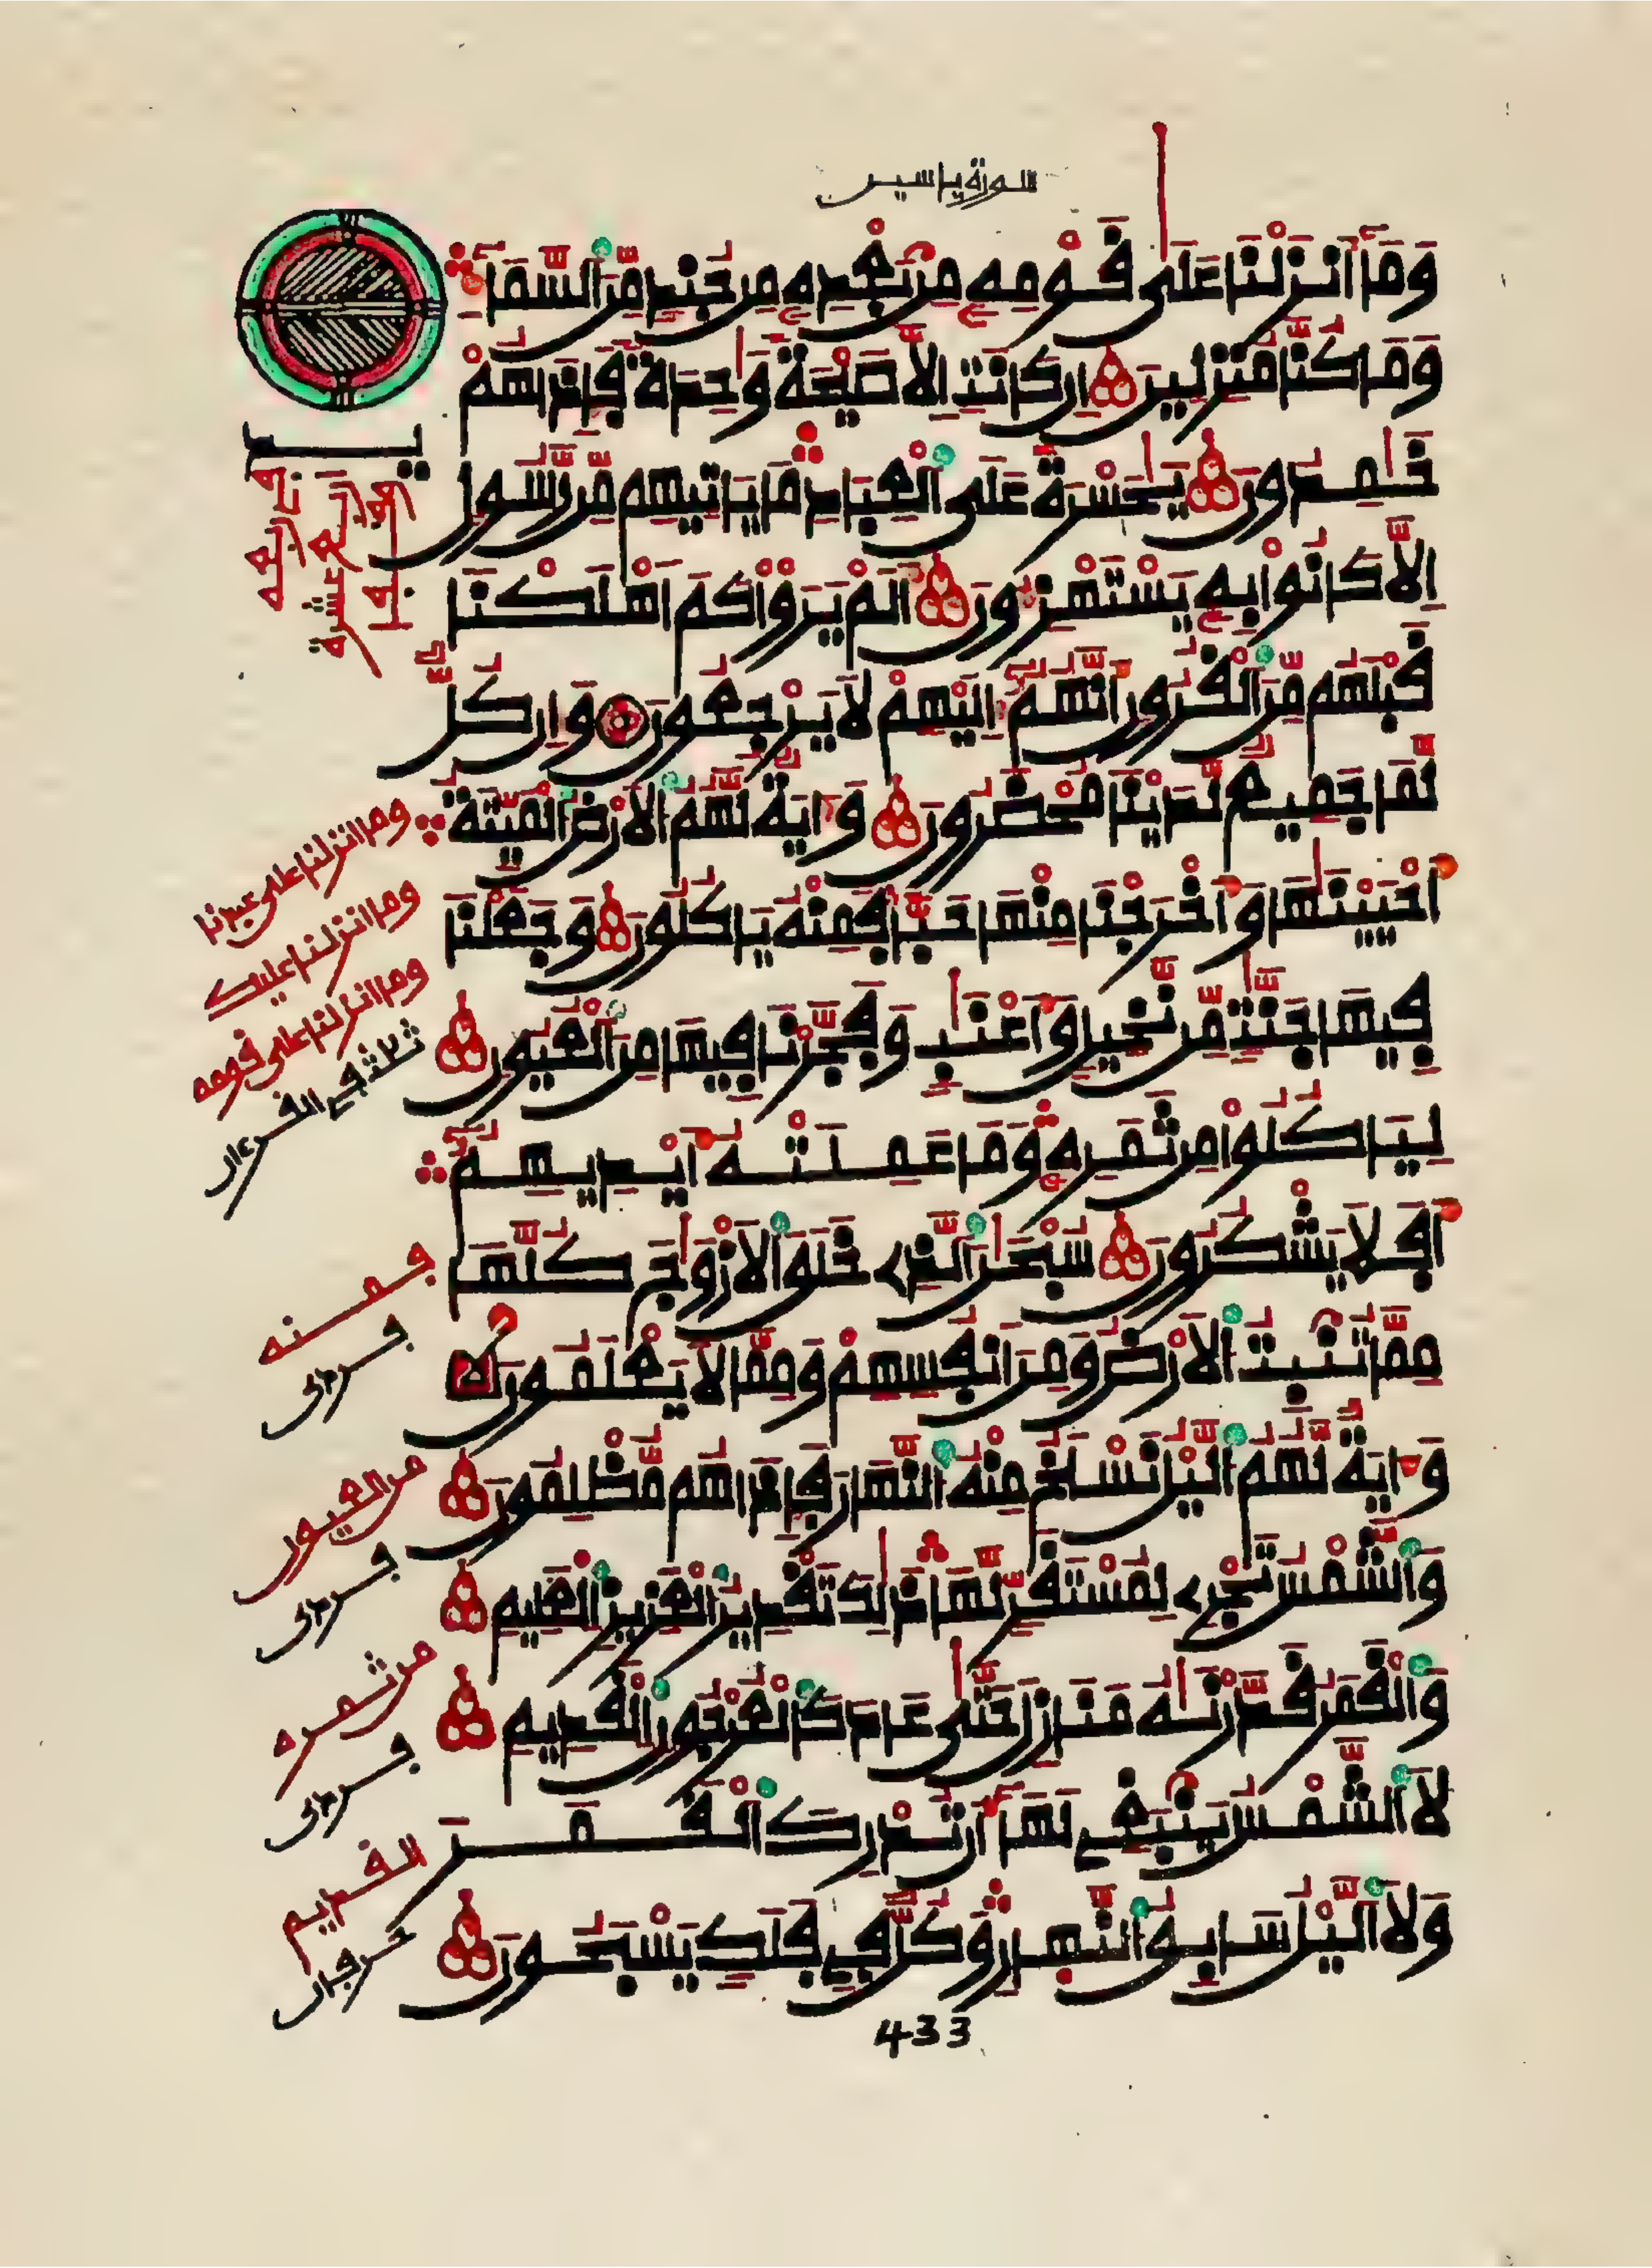 سورة ياسين
وَمَآ أَنزَلْنَا عَلَىٰ قَوْمِهِۦ مِنۢ بَعْدِهِۦ مِن جُندٍ مِّنَ ٱلسَّمَآءِ
وَمَا كُنَّا مُنزِلِينَ إِن كَانَتِ اِلَّا صَيْحَةً وَٰحِدَةً فَإِذَا هُمْ
خَٰمِدُونَ يَٰحَسْرَةً عَلَى ٱلْعِبَادِ مَا يَاتِيهِم مِّن رَّسُولٍ
اِلَّا كَانُوا بِهِۦ يَسْتَهْزِءُونَ أَلَمْ يَرَوْا كَمَ اَهْلَكْنَا
قَبْلَهُم مِّنَ ٱلْقُرُونِ أَنَّهُمُۥٓ إِلَيْهِمْ لَا يَرْجِعُونَ وَإِن كُلٌّ
لَّمَا جَمِيعٌ لَّدَيْنَا مُحْضَرُونَ وَءَايَةٌ لَّهُمُ ٱلَارْضُ ٱلْمَيِّتَةُ
أَحْيَيْنَٰهَا وَأَخْرَجْنَا مِنْهَا حَبًّا فَمِنْهُ يَاكُلُونَ وَجَعَلْنَا
فِيهَا جَنَّٰتٍ مِّن نَّخِيلٍ وَأَعْنَٰبٍ وَفَجَّرْنَا فِيهَا مِنَ ٱلْعُيُونِ
لِيَاكُلُوا مِن ثَمَرِهِۦ وَمَا عَمِلَتْهُ أَيْدِيهِمُۥٓ
أَفَلَا يَشْكُرُونَ سُبْحَٰنَ ٱلَّذِے خَلَقَ ٱلَازْوَٰجَ كُلَّهَا
مِمَّا تُنۢبِتُ ٱلَارْضُ وَمِنَ اَنفُسِهِمْ وَمِمَّا لَا يَعْلَمُونَ
وَءَايَةٌ لَّهُمُ ٱلَّيْلُ نَسْلَخُ مِنْهُ ٱلنَّهَارَ فَإِذَا هُم مُّظْلِمُونَ
وَٱلشَّمْسُ تَجْرِے لِمُسْتَقَرٍّ لَّهَا ذَٰلِكَ تَقْدِيرُ ٱلْعَزِيزِ ٱلْعَلِيمِ
وَٱلْقَمَرُ قَدَّرْنَٰهُ مَنَازِلَ حَتَّىٰ عَادَ كَالْعُرْجُونِ ٱلْقَدِيمِ
لَا ٱلشَّمْسُ يَنۢبَغِے لَهَآ أَن تُدْرِكَ ٱلْقَمَرَ
وَلَا ٱلَّيْلُ سَابِقُ ٱلنَّهَارِ وَكُلٌّ فِے فَلَكٍ يَسْبَحُونَ
433
وما انزلنا على عبدنا
وما انزلنا عليك
وما انزلنا على قومه
ثلثة في القرءان
فمنه
من العيون
من ثمره
القديم